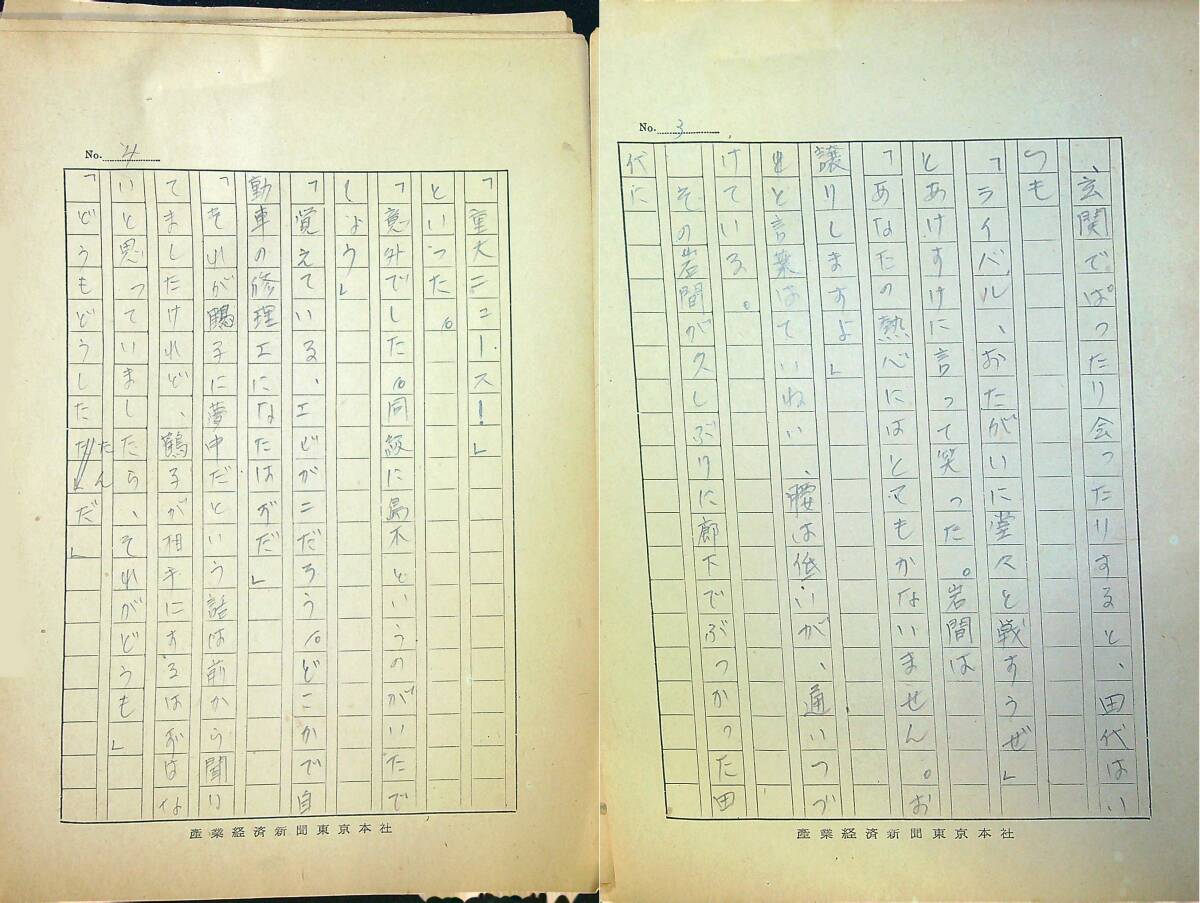 No. 3
玄関でばったり会ったりすると、田代はい
つも
「ライバル、おたがいに堂々と戦すうぜ」
とあけすけに言って笑った。岩間は
「あなたの熱心にはとてもかないません。お
譲りしますよ」
と言葉はていねい、腰は低いが、通いつづ
けている。
その岩間が久しぶりに廊下でぶつかった田
代に
産業経済新聞東京本社
No. 4
「重大ニュース!」
といった。
「意外でした。同級に島木というのがいたで
しょう」
「覚えている、エどがこだろう。どこかで自
動車の修理工になたはずだ」
「それが鶴子に夢中だという話は前から聞い
てましたけれど、鶴子が相手にするはずはな
いと思っていましたら、それがどうも」
「どうもどうしたたんだ」
産業経済新聞東京本社